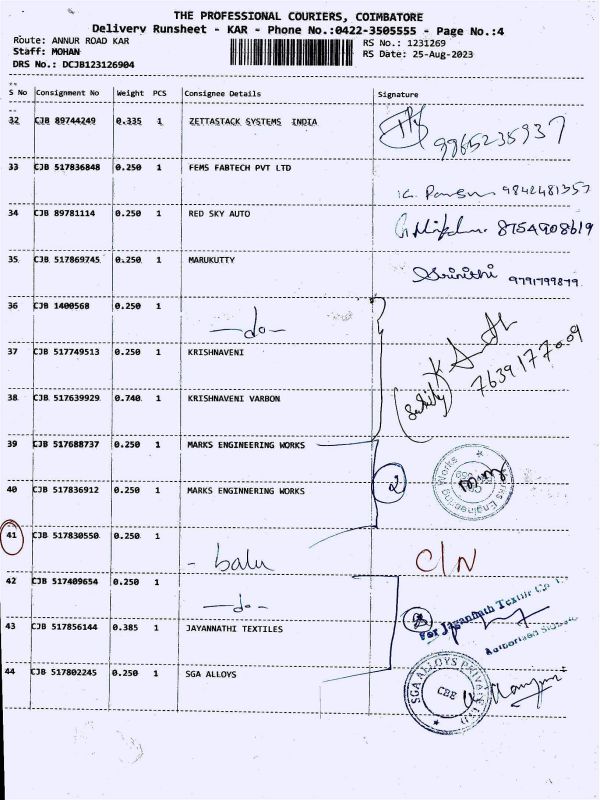 THE PROFESSIONAL COURIERS, COIMBATORE
Delivery Runsheet - KAR - Phone No.:0422-3505555 - Page No.:4
Route: ANNUR ROAD KAR
RS No.: 1231269
Staff: MOHAN
RS Date: 25-Aug-2023
DRS No.: DCJB123126904
S No Consignment No Weight PCS Consignee Details Signature
32 CJB 89744249 0.335 1 ZETTASTACK SYSTEMS INDIA
9965235937
33 CJB 517836848 0.250 1 FEMS FABTECH PVT LTD
9842481357
34 CJB 89781114 0.250 1 RED SKY AUTO
8754908619
35 CJB 517869745 0.250 1 MARUKUTTY
Srinithi 9791799879
36 CJB 1400568 0.250 1
-do-
37 CJB 517749513 0.250 1 KRISHNAVENI
7639177009
38 CJB 517639929 0.740 1 KRISHNAVENI VARBON
39 CJB 517688737 0.250 1 MARKS ENGINEERING WORKS
40 CJB 517836912 0.250 1 MARKS ENGINNERING WORKS
2
41 CJB 517830550 0.250 1
- balu
C/N
42 CJB 517409654 0.250 1
-do-
2
For Jayannath Textile
43 CJB 517856144 0.385 1 JAYANNATHI TEXTILES
44 CJB 517802245 0.250 1 SGA ALLOYS
SGA ALLOYS PRIVATE LTD
CBE